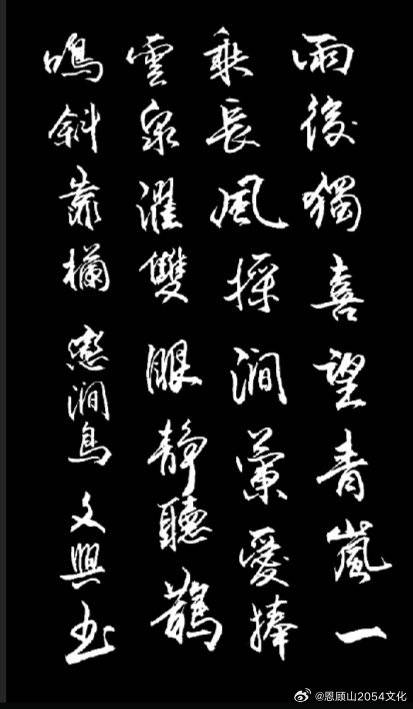 雨後獨喜望青嵐一
乘長風採澗蘭愛捧
雲泉濯雙眼靜聽
鳴斜靠欄 戀澗鳥 文興书
@恩顾山2054文化